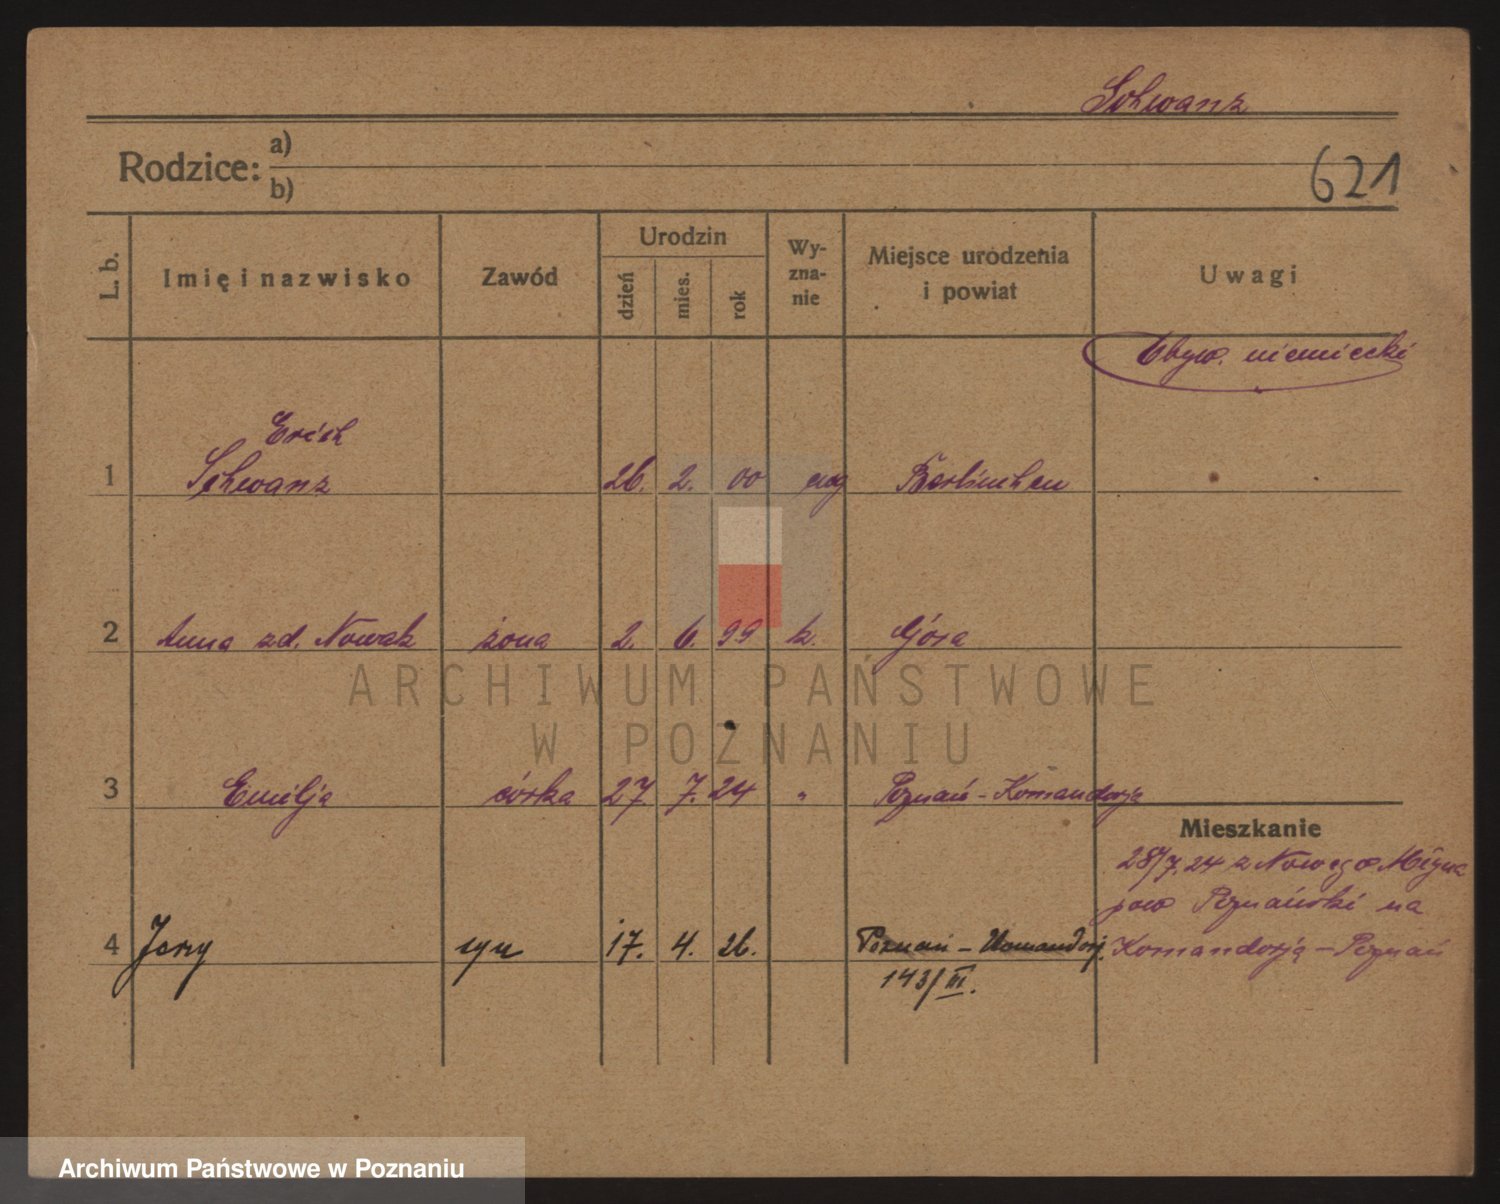 Schwanz
Rodzice: a)
b)
621
L. b. Imię i nazwisko Zawód Urodzin dzień mies. rok Wy-zna-nie Miejsce urodzenia i powiat Uwagi
Obyw. niemiecki
Erich
1 Schwanz 26. 2. 00 ewg Berlinchen
2 Anna zd. Nowak żona 2. 6. 99 k. Góra
ARCHIWUM PAŃSTWOWE
W POZNANIU
3 Emilja córka 27. 7. 24 " Poznań - Komandorja
Mieszkanie
28/7.24 z Nowego Młyna
pow Poznański na
4 Jerzy syn 17. 4. 26. Poznań - Komandorj. Komandorją - Poznań
143/III.
Archiwum Państwowe w Poznaniu